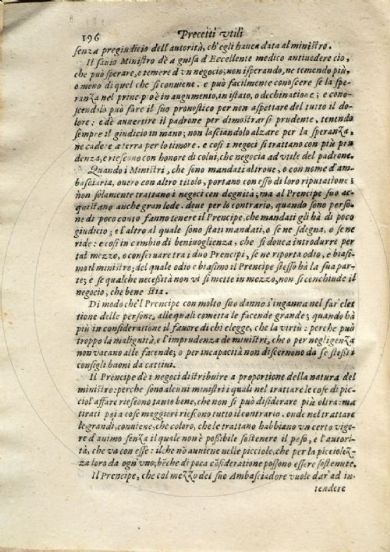 196 Precetti Vtili
senza pregiudicio dell'autorità, ch'egli hauea data al ministro.
Il sauio Ministro dè a guisa d'Eccellente medico antiuedere ciò,
che può sperare, e temere d'vn negocio; non isperando, ne temendo più,
o meno di quel che si conuiene. e può facilmente conoscere se la spe-
ranza nel princip o è in augumento, in istato, o dechinatione; e cono-
scendola può fare il suo pronostico per non aspettare del tutto il do-
lore: e dè auuertire il padrone per dimostrarsi prudente, tenendo
sempre il giudicio in mano; non lasciandolo alzare per la speranza,
ne cadere a terra per lo timore. e così i negoci si trattano con più pru
denza, e riescono con honore di colui, che negocia ad vtile del padrone.
Quando i Ministri, che sono mandati altroue, o con nome d'am-
basciaria, ouero con altro titolo, portano con esso di loro riputatione;
non solamente trattano i negoci con dignità; ma al Prencipe suo ac-
quistano anche gran lode. doue per il contrario, quando sono perso-
ne di poco conto fanno tenere il Prencipe, che mandati gli hà di poco
giudicio; e l'altro al quale sono stati mandati, o se ne sdegna, o se ne
ride: e così in cambio di beniuoglienza, che si douea introdurre per
tal mezzo, o conseruare tra i due Prencipi, se ne riporta odio, e biasi-
mo il ministro; del quale odio e biasimo il Prencipe stesso hà la sua par
te; e se qualche necessità non vi si mette in mezzo, non si conchiude il
negocio, che bene stia.
Di modo che'l Prencipe con molto suo danno s'inganna nel far' elet
tione delle persone, alle quali cometta le facende grandi; quando hà
più in consideratione il fauore di chi elegge, che la virtù: perche può
troppo la malignità, e l'imprudenza de ministri, che o per negligenza
non vacano alle facende; o per incapacità non discernono da se stessi i
consegli buoni da cattiui.
Il Prencipe dè i negoci distribuire a proportione della natura del
ministro: perche sono alcuni ministri quali nel trattare le cose di pic-
ciol affare riescono tanto bene, che non si può disiderare più oltra: ma
tirati poi a cose maggiori riescono tutto il contrario. onde nel trattare
le grandi, conuiene, che coloro, che le trattano habbiano vn certo vigo-
re d'animo senza il quale non è possibile sostenere il peso, e l'autori-
tà, che va con esse: il che nò auuiene nelle picciole, che per la picciolez-
za loro da ogn'vno; bēche di poca cōsideratione possono essere sostenute.
Il Prencipe, che col mezzo dei suo Ambasciadore vuole dar' ad in
tendere